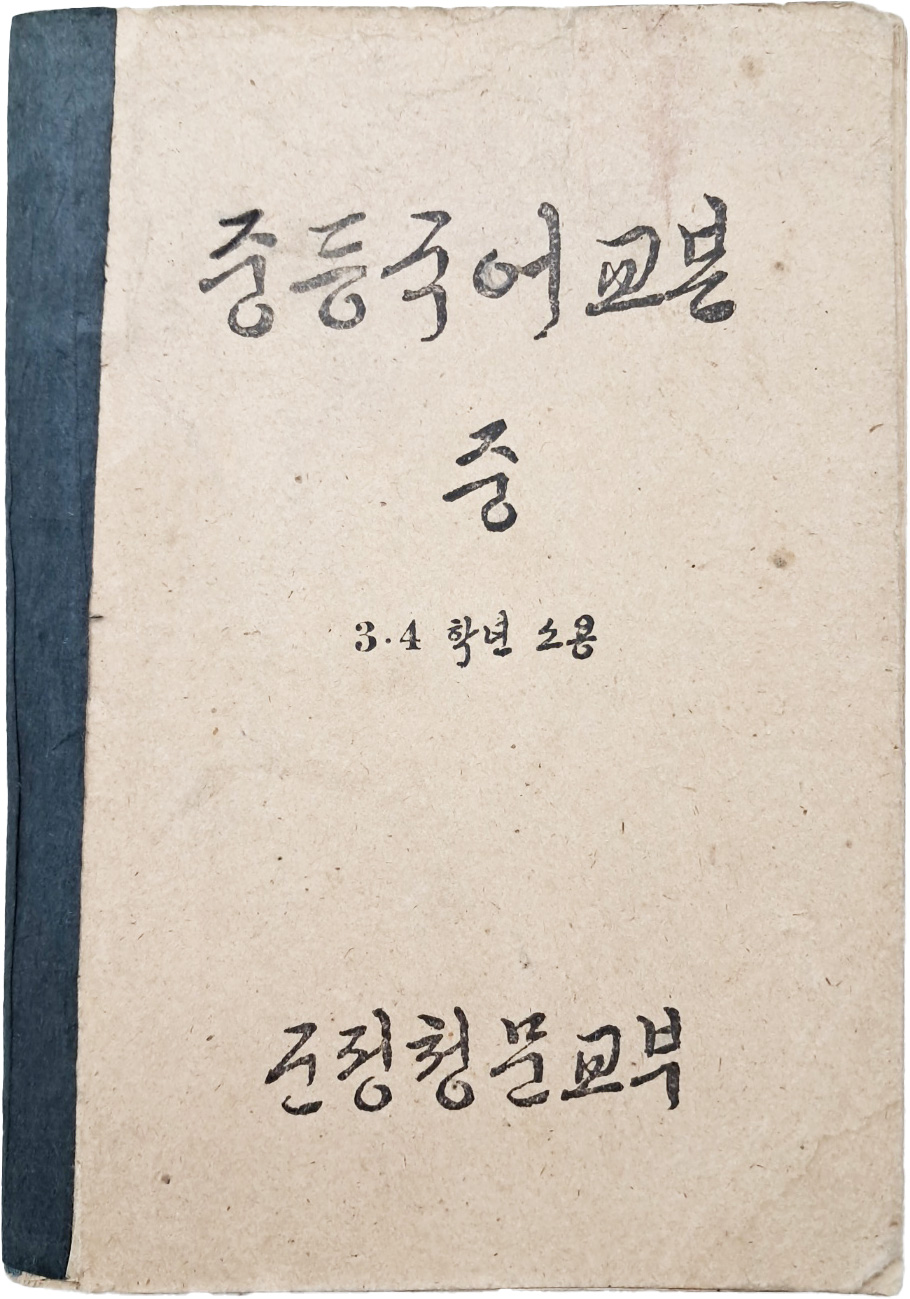 중등국어교본
중
3·4 학년 소용
군정청문교부